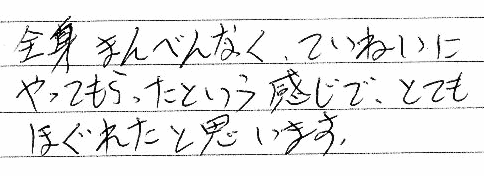 全身まんべんなく、ていねいに
やってもらったという感じで、とても
ほぐれたと思います。